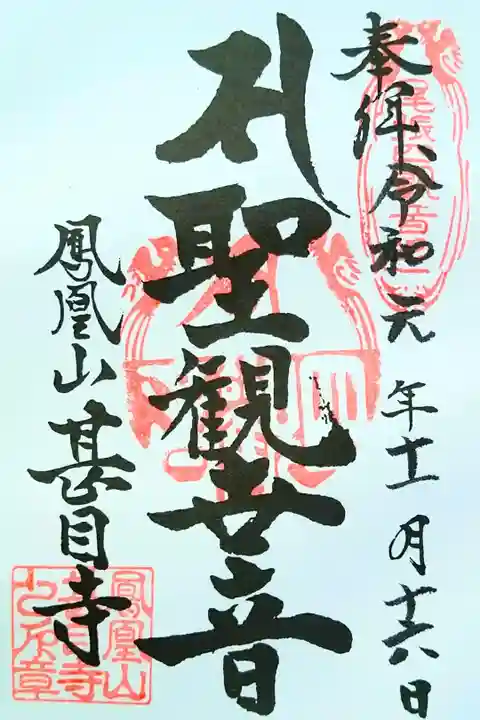 奉拝 令和元年十一月十六日
聖観世音
鳳凰山甚目寺
尾張四観音
鳳凰山
甚目寺